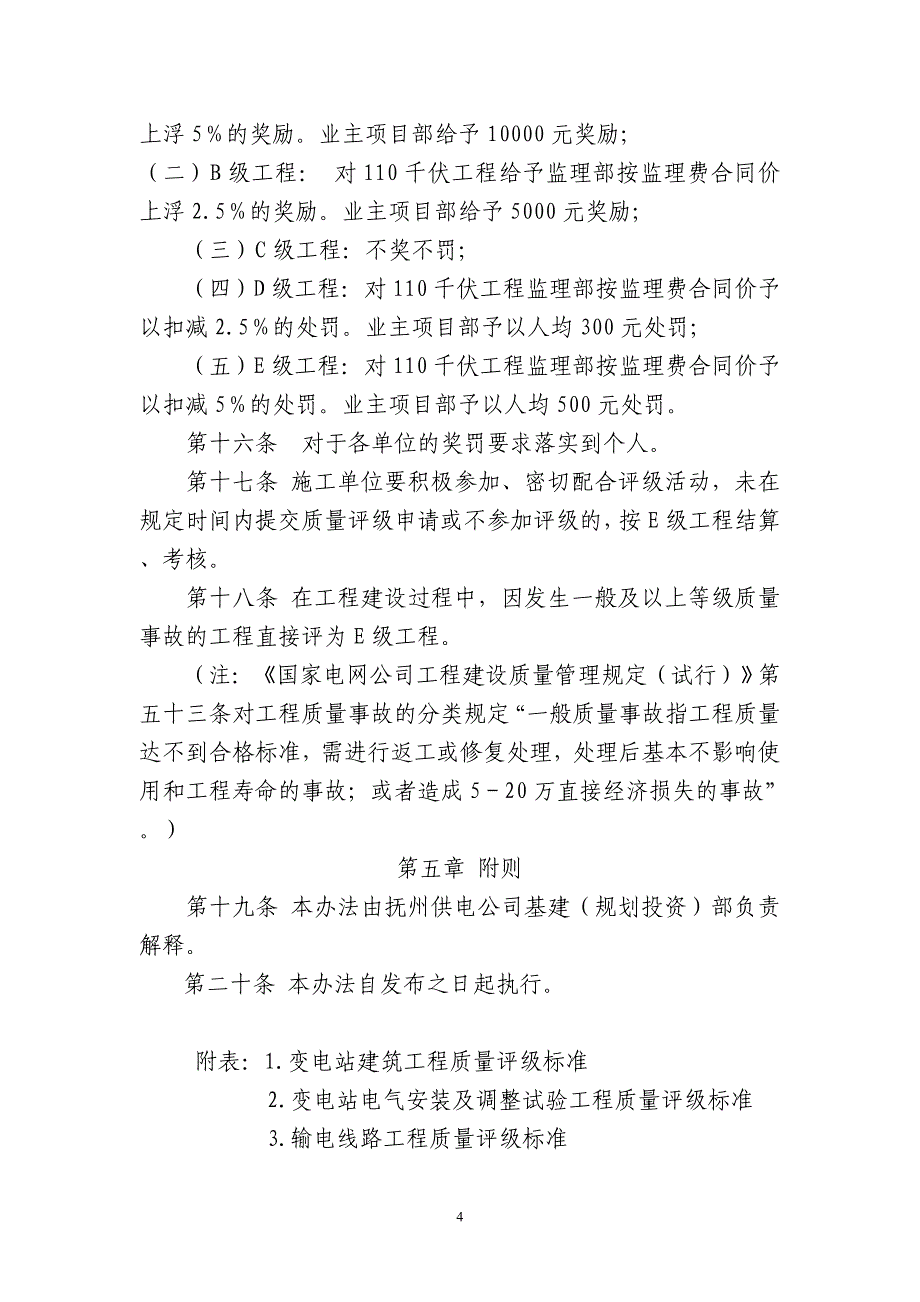 上浮5%的奖励。业主项目部给予10000元奖励；
（二）B级工程： 对110千伏工程给予监理部按监理费合同价
上浮2.5%的奖励。业主项目部给予5000元奖励；
（三）C级工程：不奖不罚；
（四）D级工程：对110千伏工程监理部按监理费合同价予
以扣减2.5%的处罚。业主项目部予以人均300元处罚；
（五）E级工程：对110千伏工程监理部按监理费合同价予
以扣减5%的处罚。业主项目部予以人均500元处罚。
第十六条 对于各单位的奖罚要求落实到个人。
第十七条 施工单位要积极参加、密切配合评级活动，未在
规定时间内提交质量评级申请或不参加评级的，按E级工程结算
、考核。
第十八条 在工程建设过程中，因发生一般及以上等级质量
事故的工程直接评为E级工程。
（注：《国家电网公司工程建设质量管理规定（试行）》第
五十三条对工程质量事故的分类规定“一般质量事故指工程质量
达不到合格标准，需进行返工或修复处理，处理后基本不影响使
用和工程寿命的事故；或者造成5-20万直接经济损失的事故”
。）
第五章 附则
第十九条 本办法由抚州供电公司基建（规划投资）部负责
解释。
第二十条 本办法自发布之日起执行。
附表：1.变电站建筑工程质量评级标准
2.变电站电气安装及调整试验工程质量评级标准
3.输电线路工程质量评级标准
4